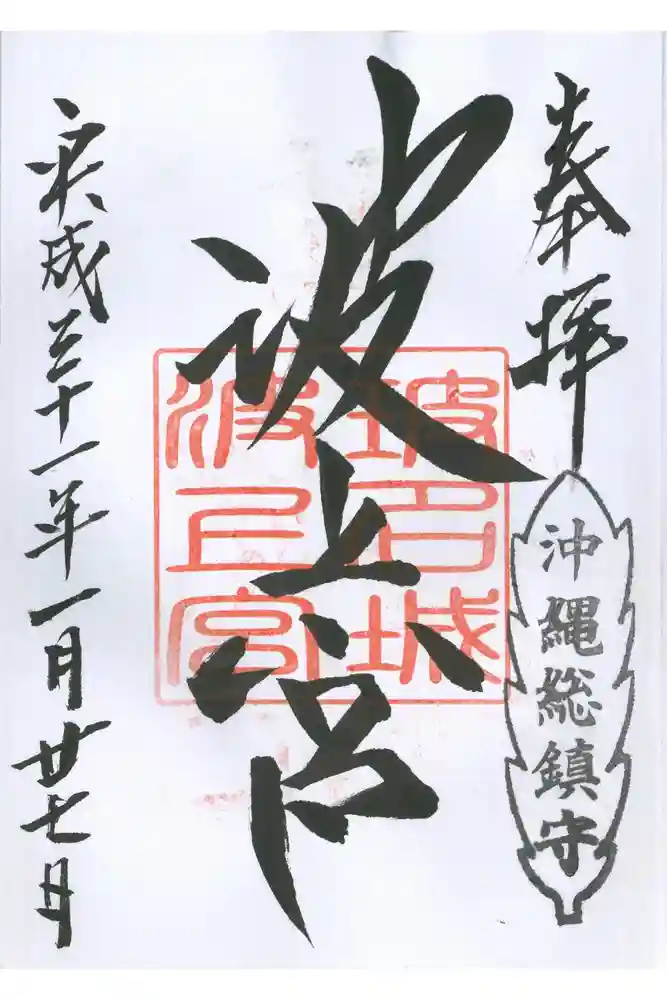 奉拝
沖縄総鎮守
波上宮
坡名城
波上宮
平成三十一年一月廿七日